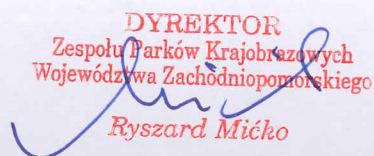 DYREKTOR
Zespołu Parków Krajobrazowych
Województwa Zachodniopomorskiego
Ryszard Mićko